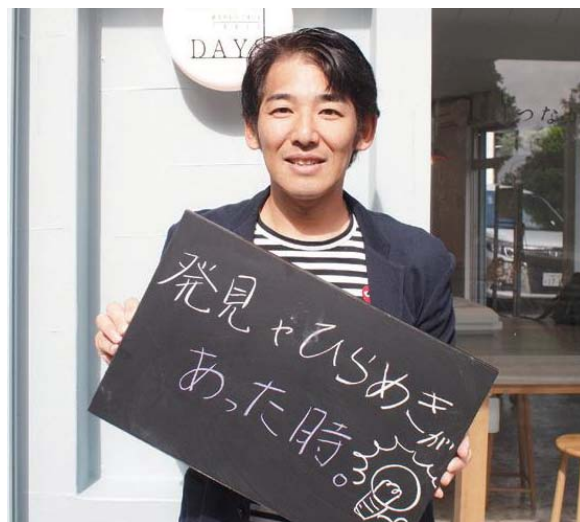 DAYS
発見やひらめきが
あった時。